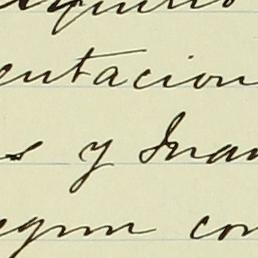 entacion
s y Juan
egun con